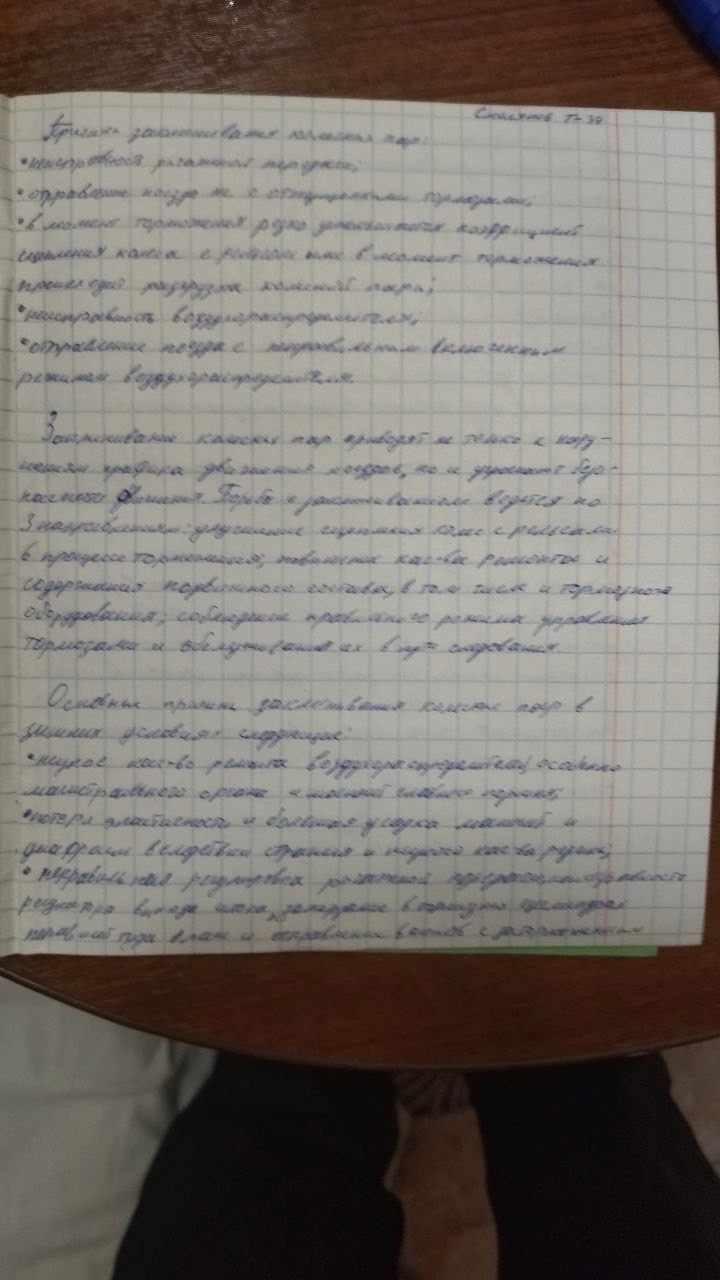 Т-32
Причины заклинивания колесных пар:
•неисправность рычажной передачи;
•отправление поезда не с отпущенными тормозами;
•в момент торможения резко коэффициент
сцепления колеса с рельсом или в момент торможения
происходит разгрузка колесной пары;
•неисправность воздухораспределителя;
•отправление поезда с неправильным включенным
режимом воздухораспределителя.
Заклинивание колесных пар приводят не только к нару-
шениям графика движения поездов, но и угрожает безо-
пасности движения. Борьба с заклиниванием ведется по
3 направлениям: улучшение сцепления колес с рельсами
в процессе торможения; повышение кас-ва ремонта и
содержания подвижного состава, в том числе и тормозного
оборудования; соблюдение правильного режима управления
тормозами и обслуживание их в пути следования.
Основные причины заклинивания колесных пар в
зимних условиях следующие:
•низкое кас-во ремонта воздухораспределителей, особенно
магистрального органа и манжет главного поршня;
•потеря эластичности и большая усадка манжет и
диафрагм вследствии старения и низкого кас-ва резины;
•неправильная регулировка рычажной передачи, неисправность
регулятора выхода штока, замерзание в тормозных цилиндрах
и отправление вагонов с заторможенными